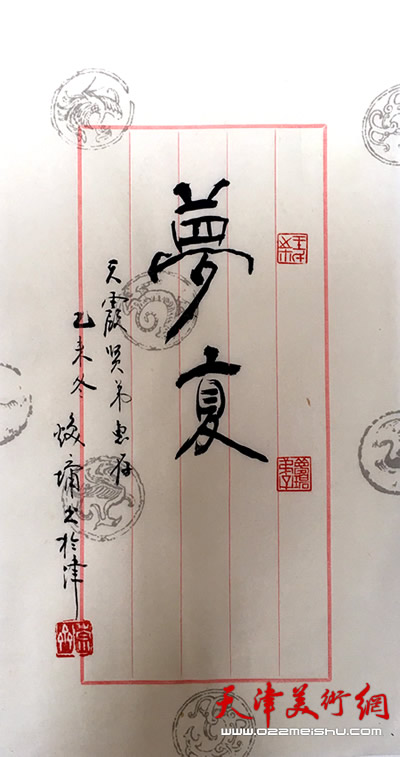 夢夏
天霞贤弟惠存
乙未冬 焕墉书於津
天津美術網
www.022meishu.com